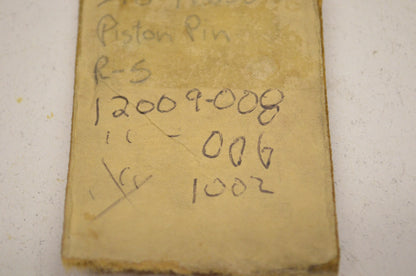 Piston Pin
R-S
12009-008
" - 006
1002